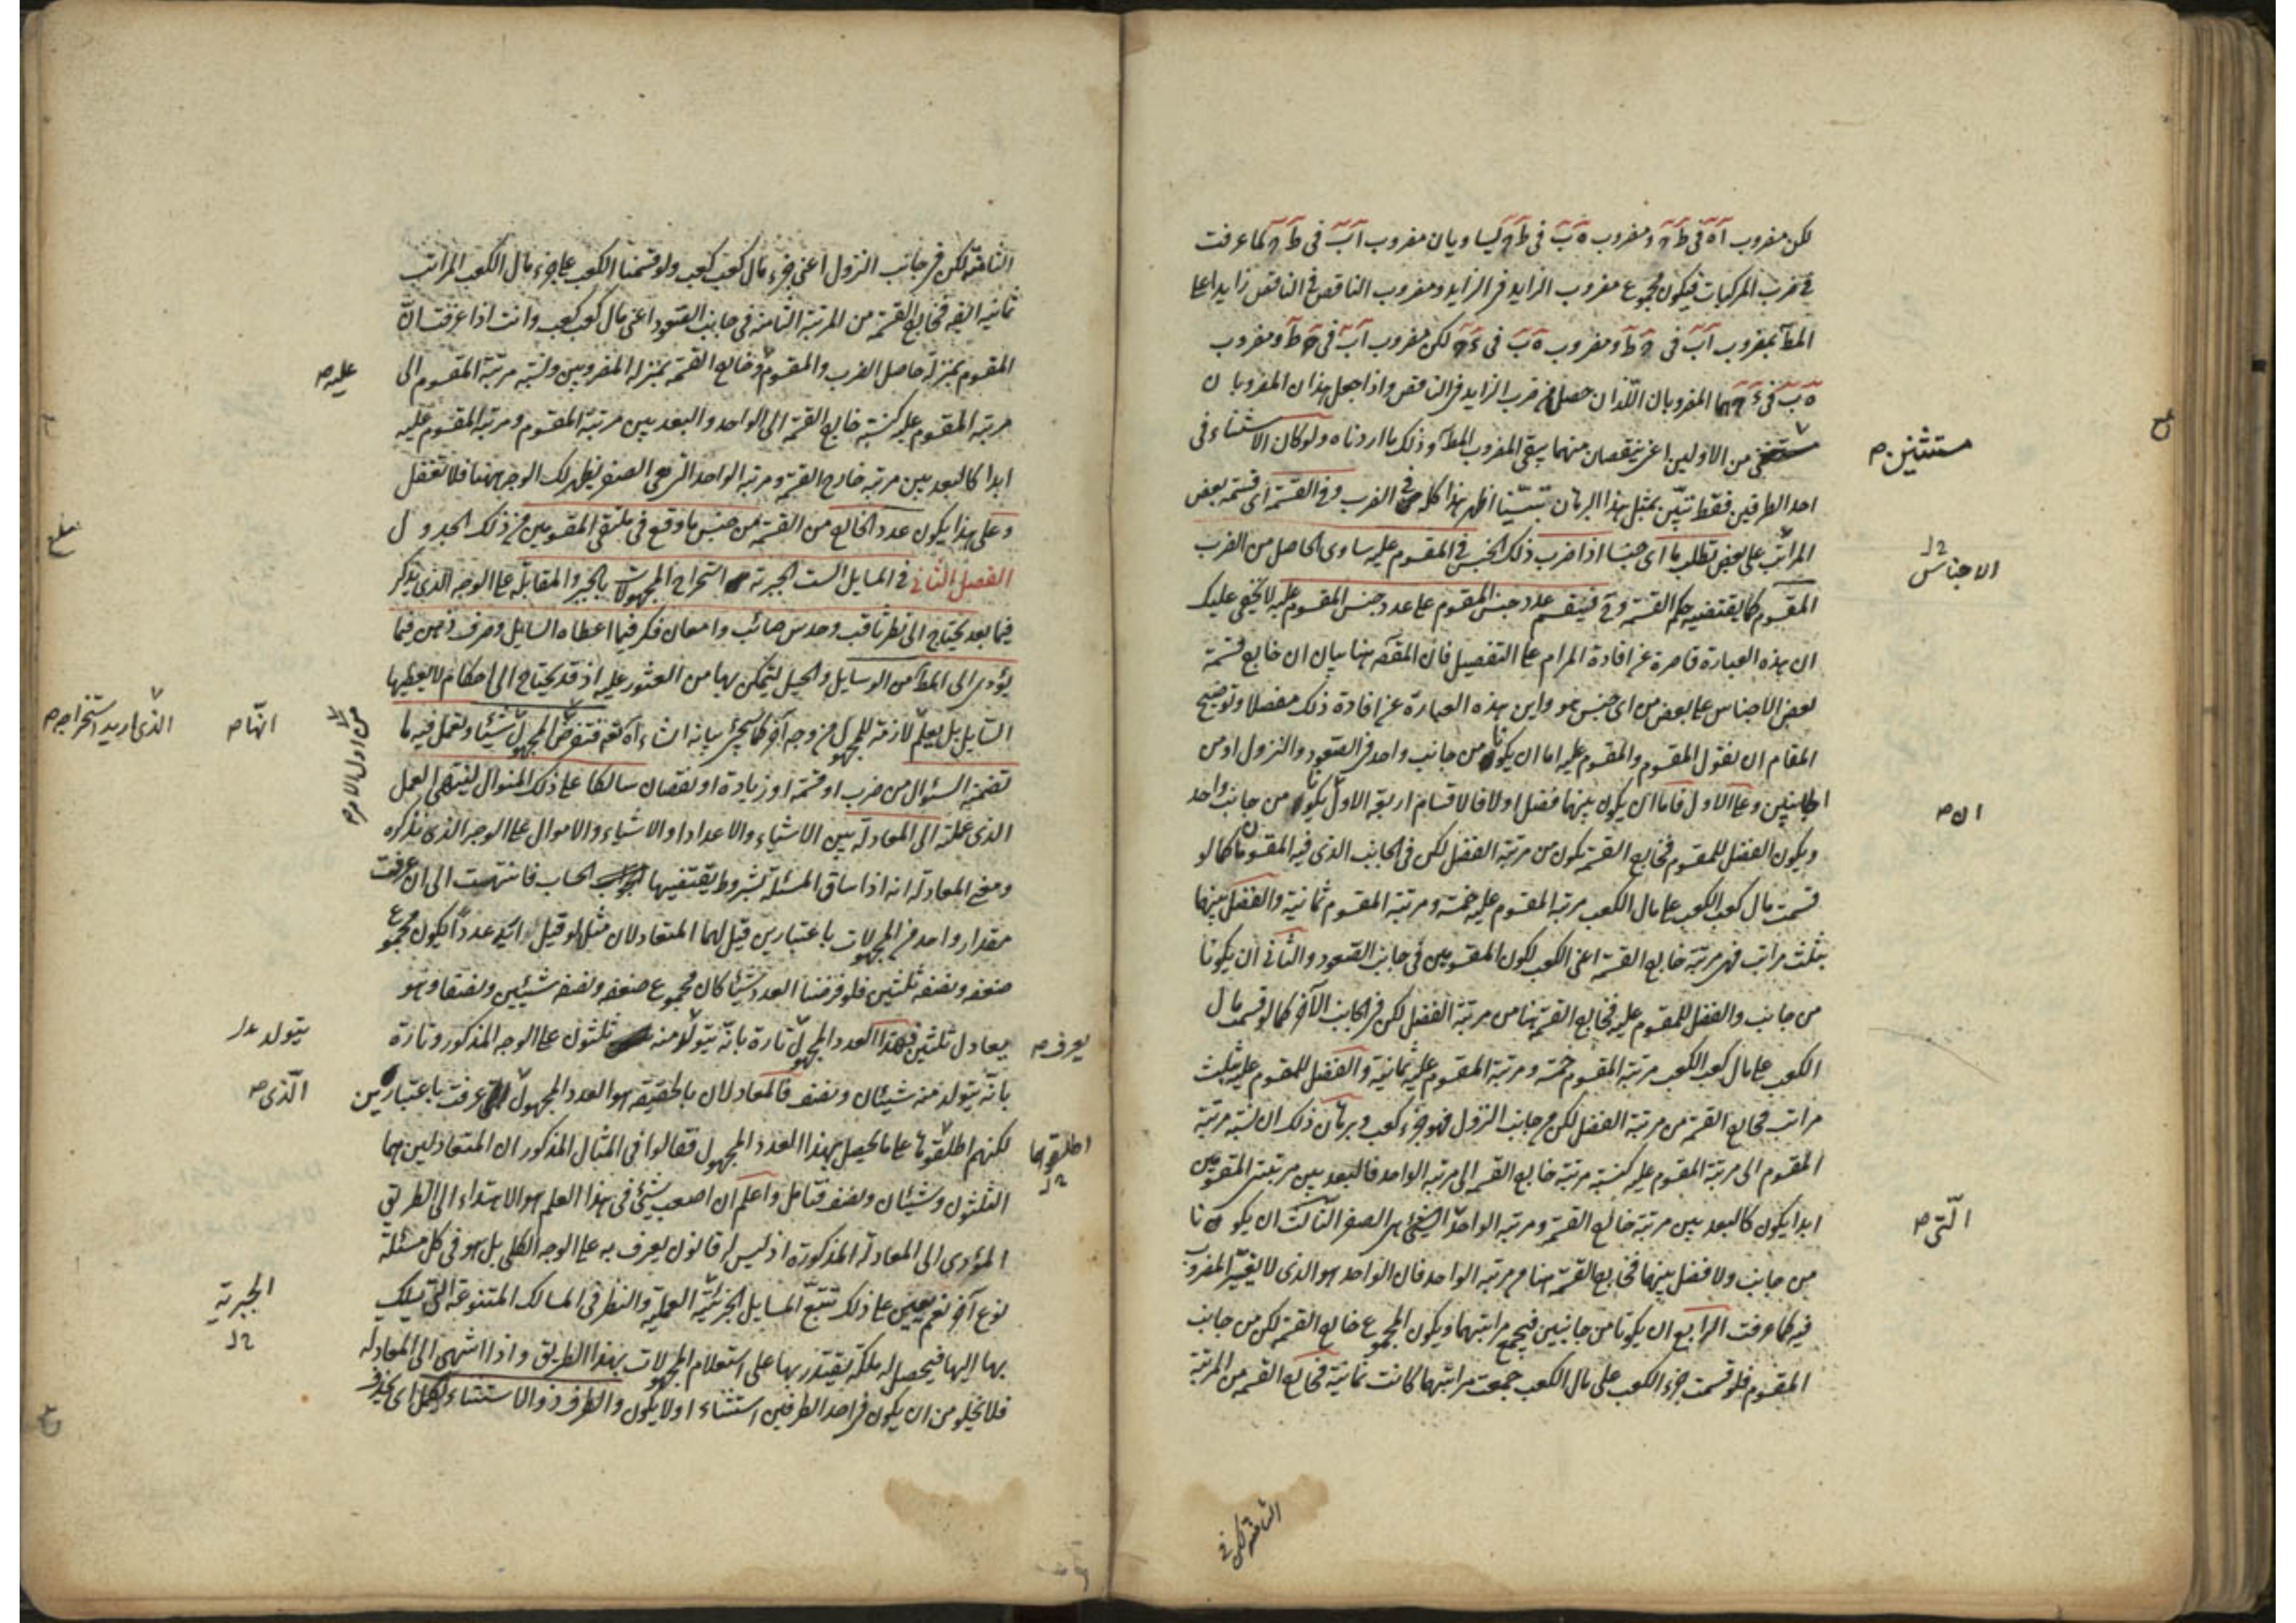 لكن مضروب آه في ط ح ومضروب ه ب في ط ح يساويان مضروب آب في ط ح لما عرفت
في ضرب المركبات فيكون مجموع مضروب الزايد في الزايد ومضروب الناقص في الناقص زايدا على
المط بمضروب آب في ح ط ومضروب ه ب في ء ح لكن مضروب آب في ح ط ومضروب
ه ب في ء ح هما المضروبان اللذان حصلا من ضرب الزايد في الناقص واذا جعل هذان المضروبان
من الاولين اعني ينقصان منهما يبقى المضروب المط وذلك ما اردناه ولو كان الاستثناء في
مستثنين ص
احد الطرفين فقط تبين بمثل هذا البرهان هذا كله في الضرب وفي القسمة اي قسمة بعض
المراتب على بعض تطلب ما اي جنسا اذا ضرب ذلك الجنس في المقسوم عليه ساوى الحاصل من الضرب
الاجناس
المقسوم كما يقتضيه حكم القسمة و ح فيقسم عدد جنس المقسوم على عدد جنس المقسوم عليه لا يخفى عليك
ان هذه العبارة قاصرة عن افادة المرام على التفصيل فان المقص هنا بيان ان خارج قسمة
بعض الاجناس على بعض من اي جنس هو واين هذه العبارة عن افادة ذلك مفصلا وتوضيح
المقام ان نقول المقسوم والمقسوم عليه اما ان يكونا من جانب واحد في الصعود والنزول او من
الجانبين وعلى الاول فاما ان يكون بينهما فضل او لا فالاقسام اربعة الاول يكونا من جانب واحد
ان ص
ويكون الفضل للمقسوم فخارج القسمة يكون من مرتبة الفضل لكن في الجانب الذي فيه المقسومان كما لو
قسمت مال كعب الكعب على مال الكعب مرتبة المقسوم عليه خمسة ومرتبة المقسوم ثمانية والفضل بينهما
بثلث مراتب فهي مرتبة خارج القسمة اعني الكعب لكون المقسومين في جانب الصعود والثاني ان يكونا
من جانب والفضل للمقسوم عليه فخارج القسمة هنا من مرتبة الفضل لكن في الجانب الآخر كما لو قسمت مال
الكعب على مال كعب الكعب مرتبة المقسوم خمسة ومرتبة المقسوم عليه ثمانية والفضل للمقسوم عليه بثلث
مراتب فخارج القسمة من مرتبة الفضل لكن في جانب النزول فهو جزء كعب وبرهان ذلك ان نسبة مرتبة
المقسوم الى مرتبة المقسوم عليه كنسبة مرتبة خارج القسمة الى مرتبة الواحد فالبعد بين مرتبتي المقسومين
ابدا يكون كالبعد بين مرتبة خارج القسمة ومرتبة الواحد هي الصفر الثالث ان يكونا
الّتي ص
من جانب ولا فضل بينهما فخارج القسمة هنا من مرتبة الواحد فان الواحد هو الذي لا يغيّر المضروب
فيه كما عرفت الرابع ان يكونا من جانبين فيجمع مراتبهما ويكون المجموع خارج القسمة لكن من جانب
المقسوم فلو قسمت جزء الكعب على مال الكعب جمعت مراتبهما كانت ثمانية فخارج القسمة من المرتبة
الثامنة لكن في
الثامنة لكن في جانب النزول اعني جزء مال كعب كعب ولو قسمنا الكعب على جزء مال الكعب المراتب
ثمانية ايضا فخارج القسمة من المرتبة الثامنة في جانب الصعود اعني مال كعب كعب وانت اذا عرفت انّ
المقسوم بمنزلة حاصل الضرب والمقسوم وخارج القسمة بمنزلة المضروبين ونسبة مرتبة المقسوم الى
عليه ص
مرتبة المقسوم عليه كنسبة خارج القسمة الى الواحد والبعد بين مرتبة المقسوم ومرتبة المقسوم عليه
ابدا كالبعد بين مرتبة خارج القسمة ومرتبة الواحد التي هي الصفر يظهر لك الوجه ههنا فلا تغفل
وعلى هذا يكون عدد الخارج من القسمة من جنس ما وقع في ملتقى المقسومين من ذلك الجدول
الفصل الثاني في المسايل الست الجبرية استخراج المجهولات بالجبر والمقابلة على الوجه الذي يذكر
فيما بعد يحتاج الى نظر ثاقب وحدس صائب وامعان فكر فيما اعطاه السايل وصرف ذهن فيما
يؤدى الى المط من الوسايل والحيل ليتمكن بها من العثور عليه اذ قد يحتاج الى احكام لا يعطيها
السّايل بل يعلم لازمة للمجهول من وجه آخر كما سيجئ بيانه انشاء الله تعم فتفرض المجهول شيئا وتعمل فيه ما
الذى اريد استخراجه ص
انّها ص
من اول الامر ص
تضمنه السؤال من ضرب او قسمة او زيادة او نقصان سالكا على ذلك المنوال لينتهى العمل
الذى عملته الى المعادلة بين الاشياء والاعداد او الاشياء والاموال على الوجه الذى يذكره
ومعنى المعادلة انه اذا ساق المسئلة بشروط يقتضيها الحساب فانتهت الى ان عرفت
مقدار واحد من المجهولات باعتبارين قيل لهما المتعادلان مثل لو قيل اىّ عدد يكون مجموع
ضعفه ونصفه ثلثين فلو فرضنا العدد شيئا كان مجموع ضعفه ونصفه شيئين ونصفا وهو
يعادل ثلثين فهذا العدد المجهول تارة بانّه يتولد منه ثلثون على الوجه المذكور وتارة
يعرف ص
يتولد
بانّه يتولد منه شيئان ونصف فالمعادلان بالحقيقة هو العدد المجهول عرفت باعتبارين
الّذى ص
لكنهم اطلقوها على ما يحصل بهذا العدد المجهول فقالوا فى المثال المذكور ان المتعادلين هما
اطلقوهما
الثلثون وشيئان ونصف فتامل واعلم ان اصعب شئ فى هذا العلم هو الاهتداء الى الطريق
المؤدى الى المعادلة المذكورة اذ ليس له قانون يعرف به على الوجه الكلى بل هو فى كل مسئلة
نوع آخر نعم يعين على ذلك تتبّع المسايل الجزئيّة العمليّة والنظر فى المسالك المتنوعة التى يسلك
الجبرية
بها اليها فيحصل له ملكة يقتدر بها على استعلام المجهولات بهذا الطريق واذا انتهى الى المعادلة
فلا يخلو من ان يكون فى احد الطرفين استثناء او لا يكون والطرف ذو الاستثناء يكمل اى يحذف